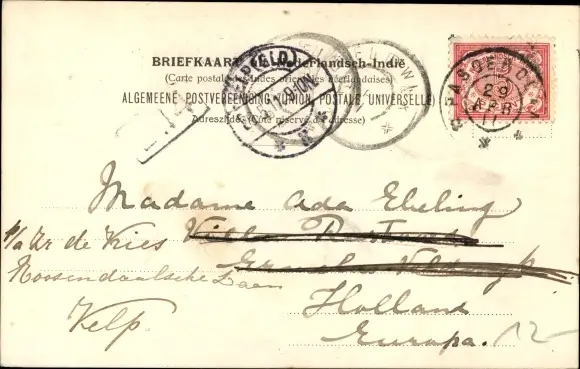 BRIEFKAART Nederlandsch-Indië
(Carte postale des Indes orientales néerlandaises)
ALGEMEENE POSTVEREENIGING (UNION POSTALE UNIVERSELLE)
Adreszijde (Côté réservé à l'adresse)
29
APR
11
Madame Ada Ebeling
Villa
p/a Hr de Vries
Roosendaalsche Laan
Velp.
Holland
Europa.
12-